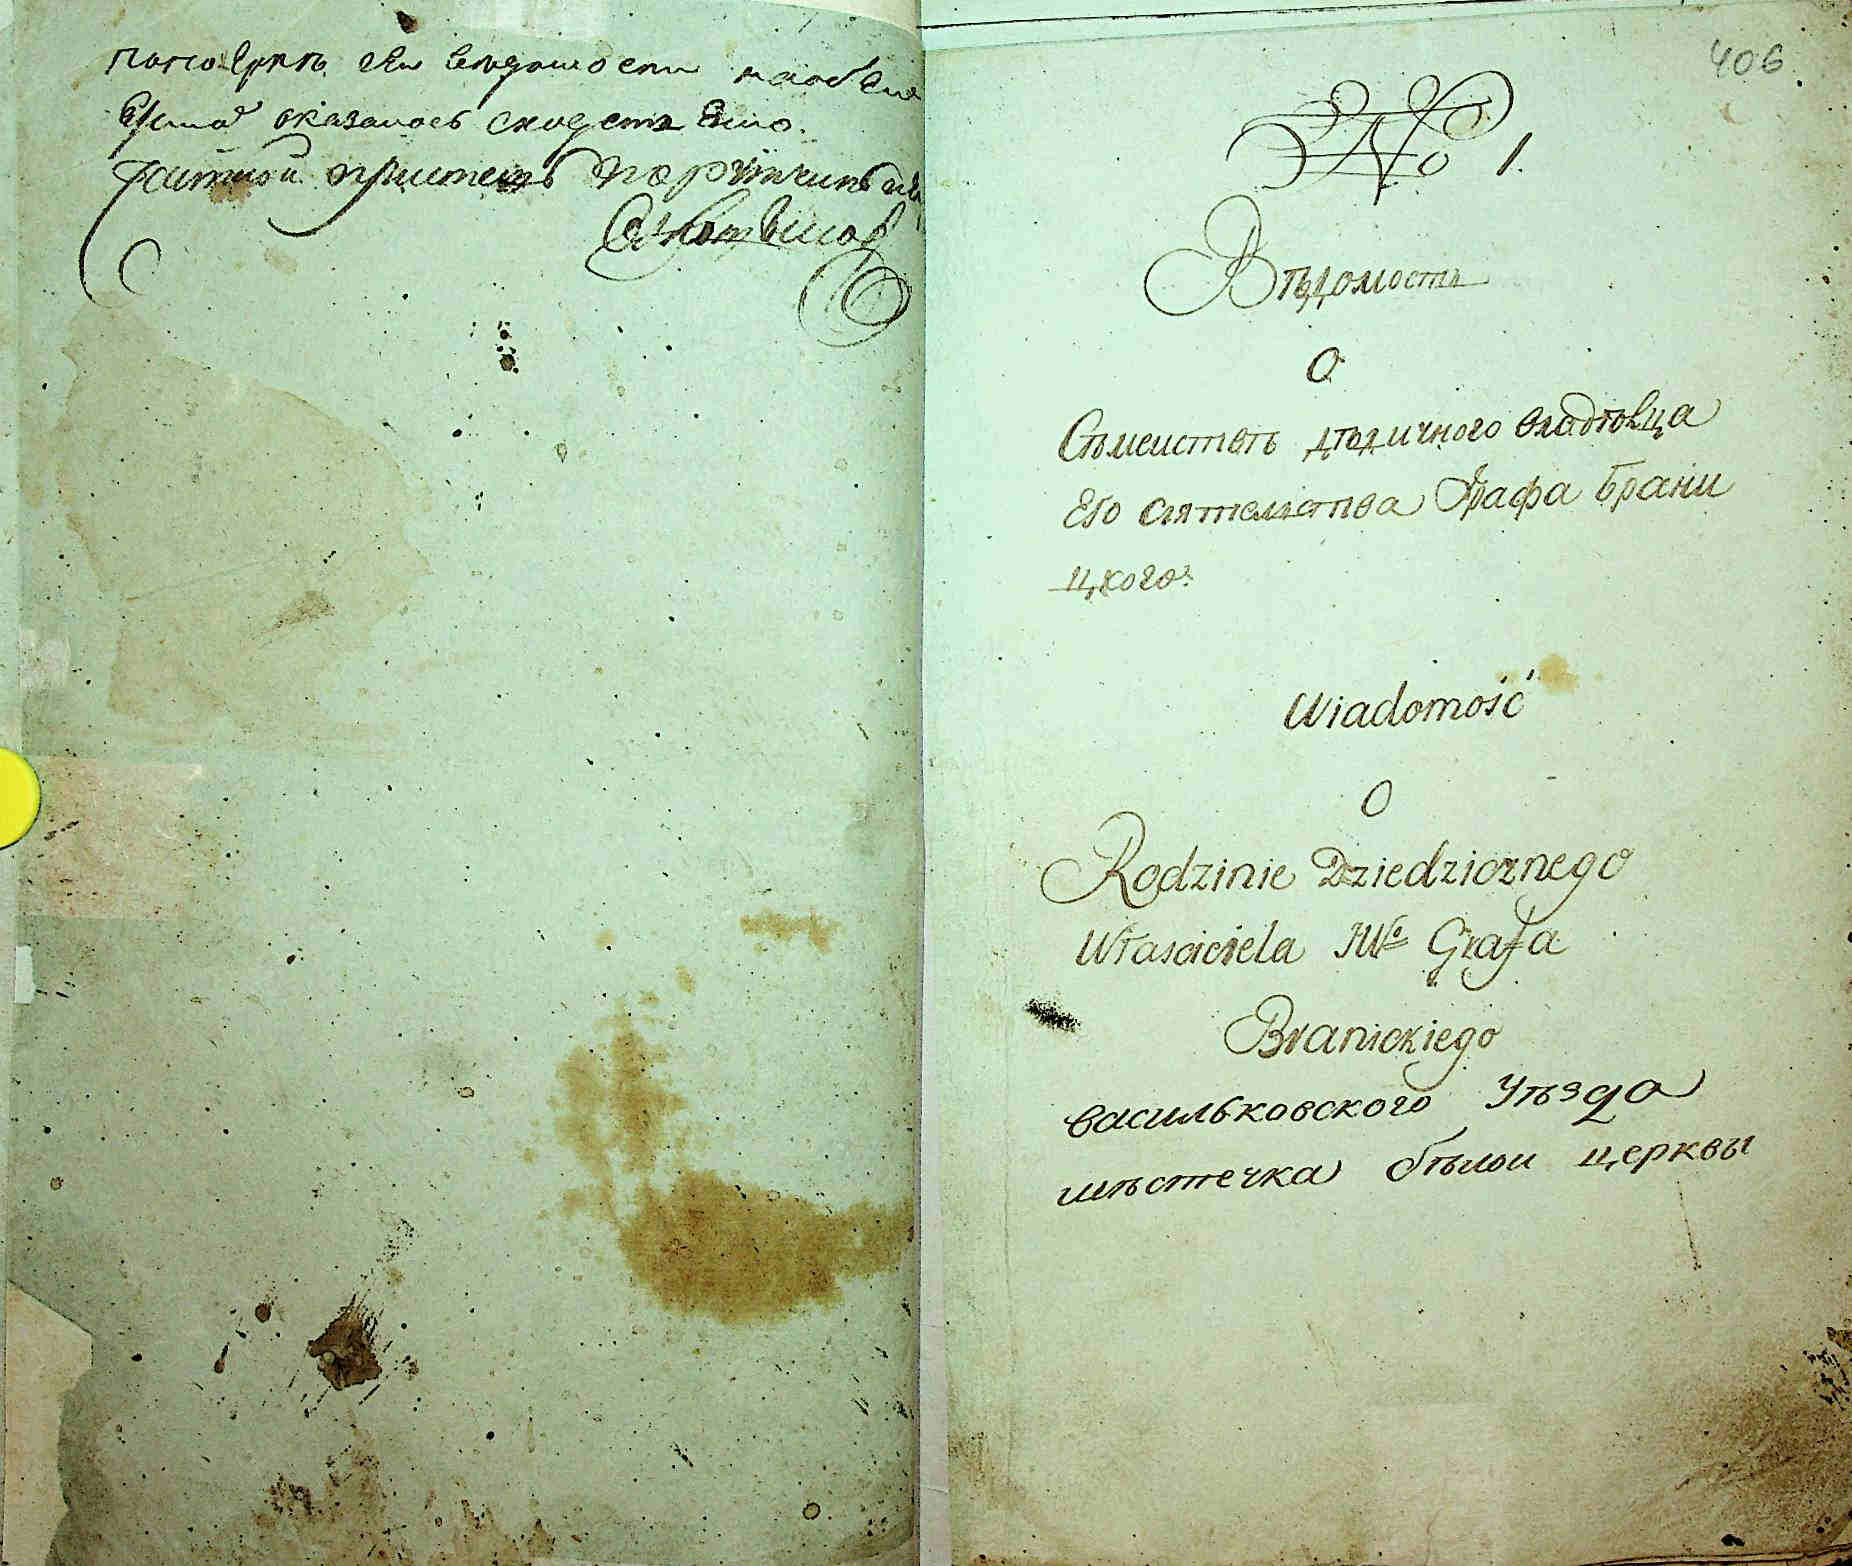 по поверкѣ сей вѣдомости
оказалось сходственно.
406
№ 1.
Вѣдомость
О
Сѣмеиствѣ дѣдичного владѣлца
Его сиятелства Графа Брани
цкого.
Wiadomość
O
Rodzinie Dziedzicznego
Właściciela JWo Grafa
Branickiego
васильковского Уѣзда
мѣстечка бѣлои церквы